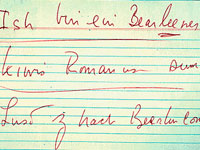 Ish bin ein Bearleener
kiwis Romanus sum
Lusd z nach Bearlin com